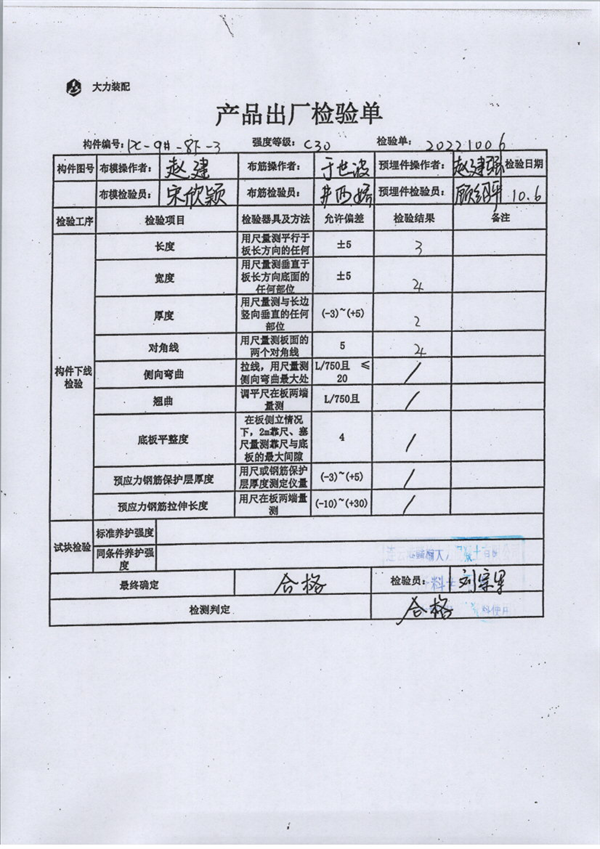 大力装配
产品出厂检验单
构件编号: PC-9#-8F-3 强度等级: C30 检验单: 20221006
构件图号 布模操作者: 赵建 布筋操作者: 于世波 预埋件操作者: 赵建强 检验日期
布模检验员: 宋欣颖 布筋检验员: 预埋件检验员: 10.6
检验工序 检验项目 检验器具及方法 允许偏差 检验结果 备注
构件下线检验
长度 用尺量测平行于板长方向的任何 ±5 3
宽度 用尺量测垂直于板长方向底面的任何部位 ±5 4
厚度 用尺量测与长边竖向垂直的任何部位 (-3)~(+5) 2
对角线 用尺量测板面的两个对角线 5 4
侧向弯曲 拉线,用尺量测侧向弯曲最大处 L/750且 ≤20 /
翘曲 调平尺在板两端量测 L/750且 /
底板平整度 在板侧立情况下,2m靠尺、塞尺量测靠尺与底板的最大间隙 4 /
预应力钢筋保护层厚度 用尺或钢筋保护层厚度测定仪量 (-3)~(+5) /
预应力钢筋拉伸长度 用尺在板两端量测 (-10)~(+30) /
试块检验 标准养护强度
同条件养护强度
最终确定 合格 检验员: 刘宗军
检测判定 合格